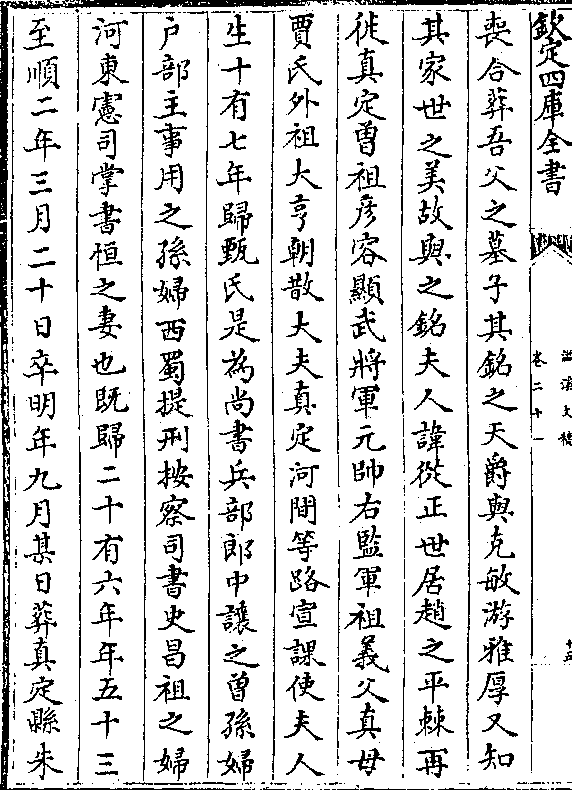 欽定四庫全書
滋溪文稿
卷二十一
喪合葬吾父之墓子其銘之天爵與克敏游雅厚又知
其家世之美故與之銘夫人諱從正世居趙之平棘再
徙真定曾祖彦容顯武將軍元帥右監軍祖義父真母
賈氏外祖大亨朝散大夫真定河間等路宣課使夫人
生十有七年歸甄氏是為尚書兵部郎中讓之曾孫婦
户部主事用之孫婦西蜀提刑按察司書史昌祖之婦
河東憲司掌書恒之妻也既歸二十有六年年五十三
至順二年三月二十日卒明年九月某日葬真定縣朱